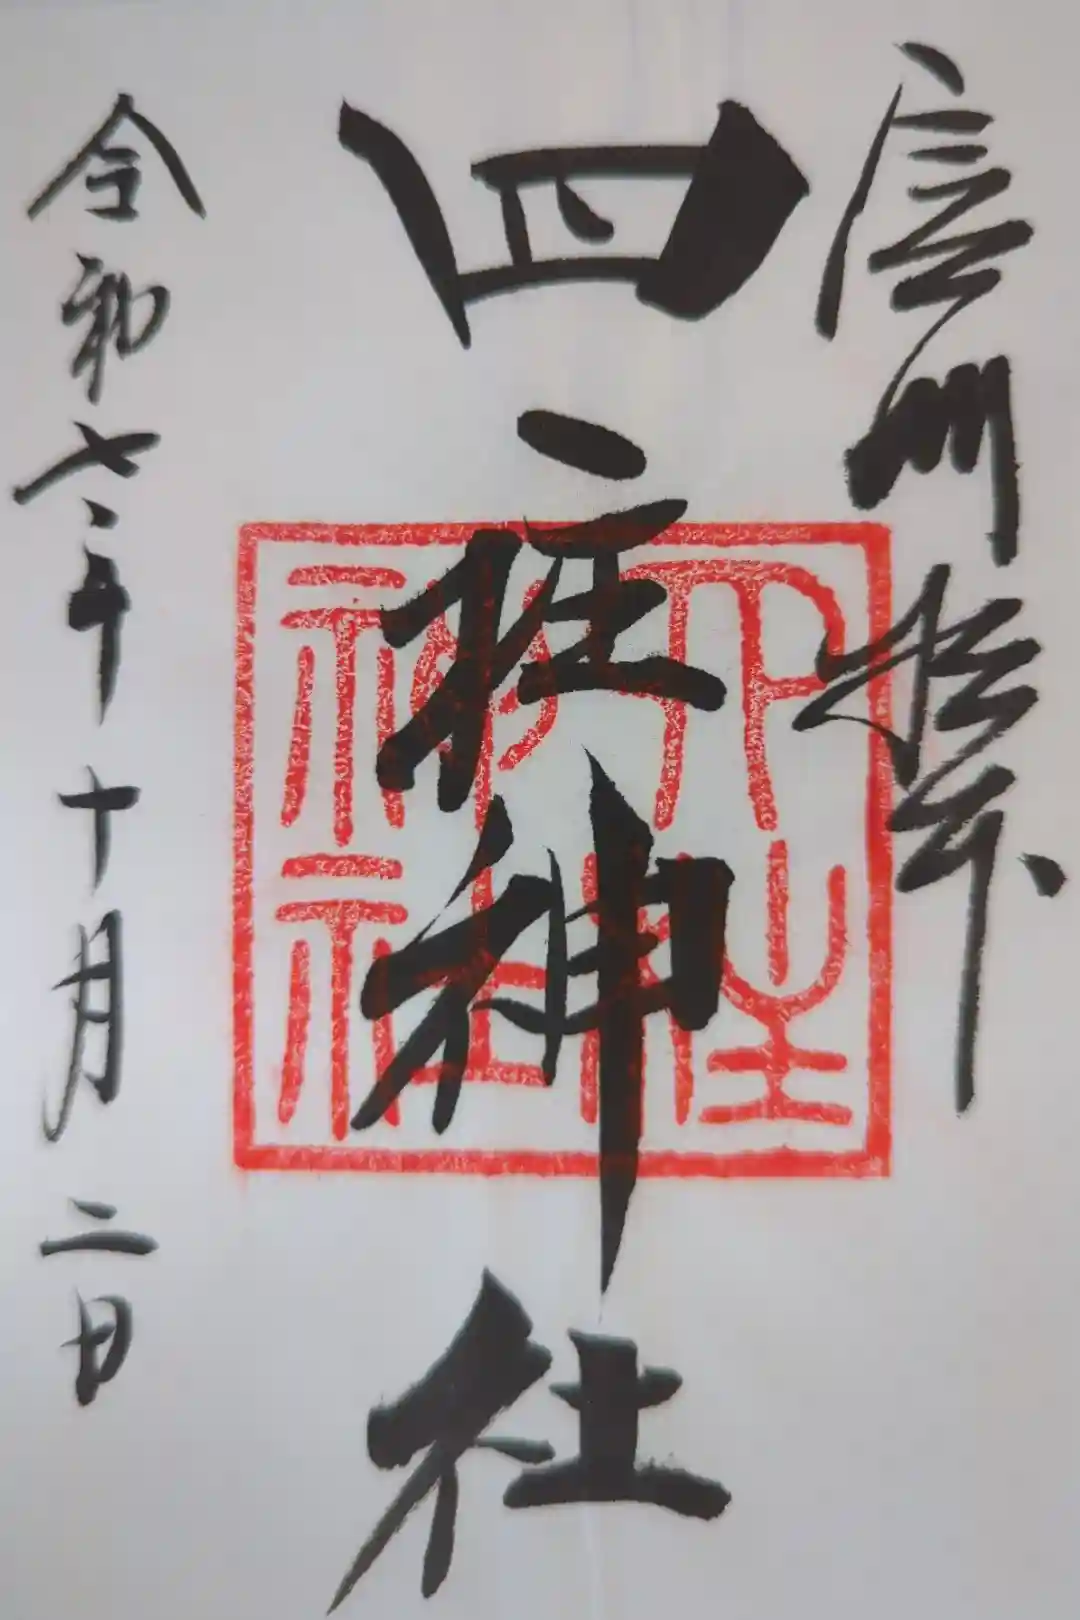 信州松本
四柱神社
四柱
神社
令和七年十月二日